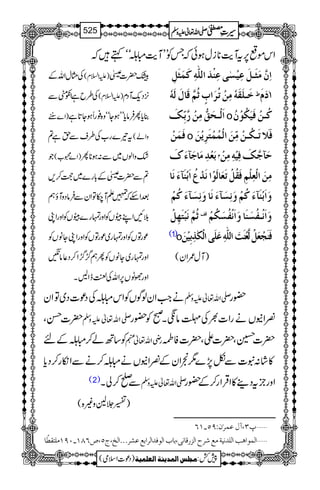 سیرتِ مصطفی صلی اللہ تعالیٰ علیہ وسلم 525
اس موقع پر یہ آیت نازل ہوئی کہ جس کو ’’آیت مباہلہ‘‘ کہتے ہیں کہ
اِنَّ مَثَلَ عِیْسٰی عِنْدَ اللّٰهِ كَمَثَلِ
اٰدَمَؕ-خَلَقَهٗ مِنْ تُرَابٍ ثُمَّ قَالَ لَهٗ
كُنْ فَیَكُوْنُ o اَلْحَقُّ مِنْ رَّبِّكَ
فَلَا تَكُنْ مِّنَ الْمُمْتَرِیْنَ o فَمَنْ
حَآجَّكَ فِیْهِ مِنْۢ بَعْدِ مَا جَآءَكَ
مِنَ الْعِلْمِ فَقُلْ تَعَالَوْا نَدْعُ اَبْنَآءَنَا
وَ اَبْنَآءَكُمْ وَ نِسَآءَنَا وَ نِسَآءَكُمْ
وَ اَنْفُسَنَا وَ اَنْفُسَكُمْ- ثُمَّ نَبْتَهِلْ
فَنَجْعَلْ لَّعْنَتَ اللّٰهِ عَلَى الْكٰذِبِیْنَ o (1)
(آل عمران)
بیشک حضرت عیسیٰ (علیہ السلام) کی مثال اللہ کے
نزدیک آدم (علیہ السلام) کی طرح ہے انکو مٹی سے
بنایا پھر فرمایا ’’ہوجا‘‘ وہ فوراً ہوجاتا ہے (اے سننے
والے) یہ تیرے رب کی طرف سے حق ہے تم
شک والوں میں سے نہ ہونا پھر (اے محبوب) جو
تم سے حضرت عیسیٰ کے بارے میں حجت کریں
بعد اسکے کہ تمہیں علم آچکا تو ان سے فرمادو آؤ ہم
بلائیں اپنے بیٹوں اور تمہارے بیٹوں کو اور اپنی
عورتوں کو اور تمہاری عورتوں کو اور اپنی جانوں کو
اور تمہاری جانوں کو پھر ہم گڑگڑا کر دعا مانگیں
اور جھوٹوں پر اللہ کی لعنت ڈالیں۔
حضور صلی اللہ تعالیٰ علیہ وسلم نے جب ان لوگوں کو اس مباہلہ کی دعوت دی تو ان
نصرانیوں نے رات بھر کی مہلت مانگی۔ صبح کو حضور صلی اللہ تعالیٰ علیہ وسلم حضرت حسن،
حضرت حسین، حضرت علی، حضرت فاطمہ رضی اللہ تعالیٰ عنہم کو ساتھ لے کر مباہلہ کے لئے
کاشانۂ نبوت سے نکل پڑے مگر نجران کے نصرانیوں نے مباہلہ کرنے سے انکار کر دیا
اور جزیہ دینے کا اقرار کر کے حضور صلی اللہ تعالیٰ علیہ وسلم سے صلح کر لی۔ (2)
(تفسیر جلالین وغیرہ)
......پ۳، آل عمران:۵۹۔۶۱
......المواهب اللدنية مع شرح الزرقانی، باب الوفد الرابع عشر...الخ، ج۵، ص۱۸۶۔۱۹۰ ملتقطًا
پیش کش: مجلس المدينة العلمية (دعوتِ اسلامی)